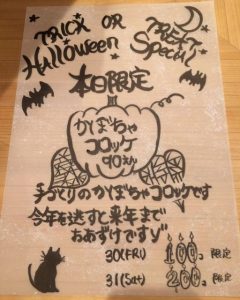 TRICK OR TREAT
Halloween Special
本日限定
かぼちゃ
コロッケ
90えん
手づくりのかぼちゃコロッケです
今年を逃すと来年まで
おあずけですy゛
30(FRI) 100コ限定
31(Sat) 200コ限定